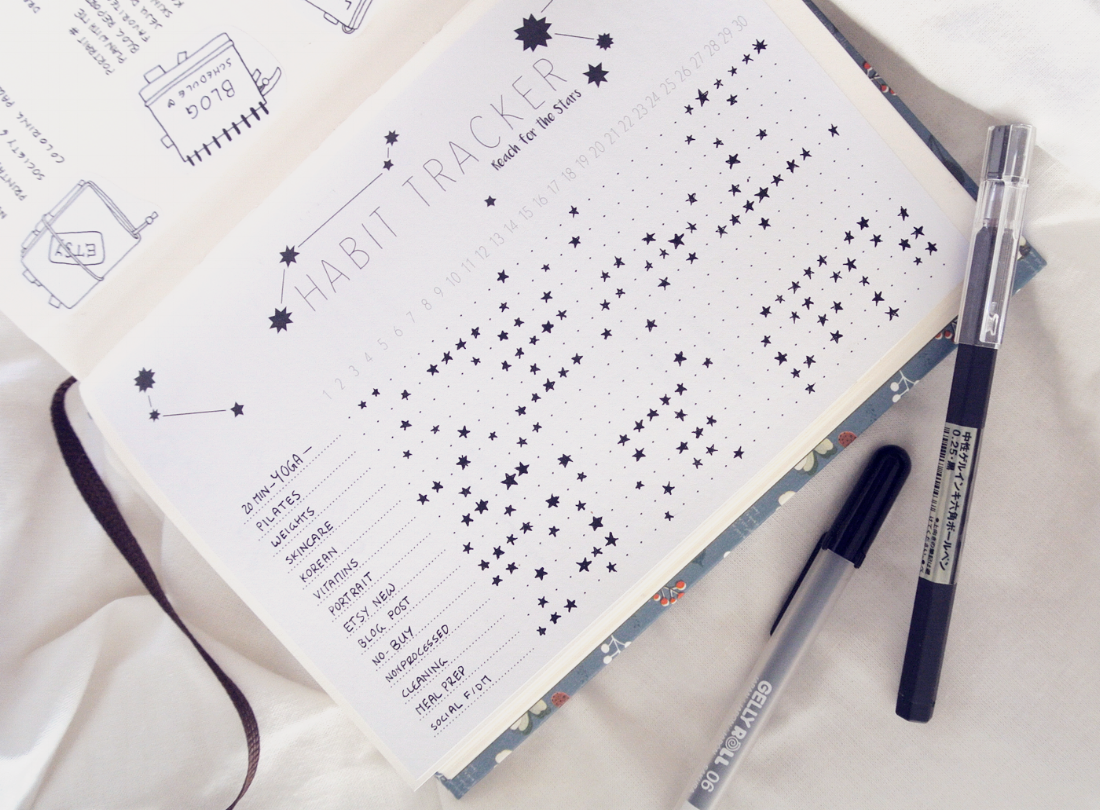 PORTRAIT #
PLAN WITH ME
BLOG
SCHEDULE
SOCIETY 6
COLORING
ETSY
HABIT TRACKER
Reach for the Stars
1 2 3 4 5 6 7 8 9 10 11 12 13 14 15 16 17 18 19 20 21 22 23 24 25 26 27 28 29 30
20 MIN-YOGA
PILATES
WEIGHTS
SKINCARE
KOREAN
VITAMINS
PORTRAIT
ETSY NEW
BLOG POST
NO-BUY
NONPROCESSED
CLEANING
MEAL PREP
SOCIAL F/DM
中性ゲルインキ六角ボールペン
0.25・黒
GELLY ROLL 06